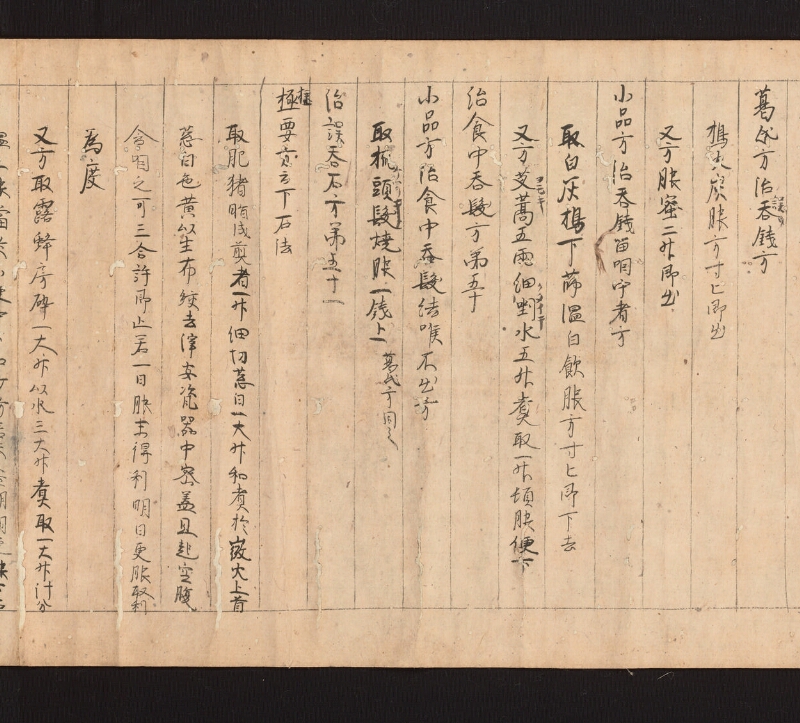 葛氏方治誤吞錢方
搗火炭服方寸匕即出
又方服蜜二升即出
小品方治吞錢留咽中者方
取白灰搗下篩温白飲服方寸匕即下去
又方艾蒿五兩細剉水五升煮取一升頓服便下
治食中吞髮方第五十
小品方治食中吞髮結喉不出方
取梳頭髮燒服一錢上 葛氏方同之
治誤吞石方第五十一
極要方云下石法
取肥猪脂成煎者一升細切葱白一大升和煮於微火上首
葱白色黄以生布絞去滓安瓷器中密盖且起空腹
含咽之可三合許即止若一日服未得利明日更服取利
為度
又方取露蜂房碎一大升以水三大升煮取一大升汁分